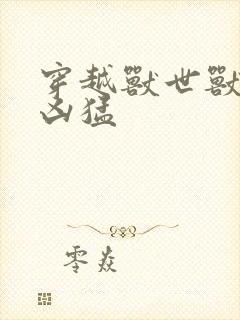 穿越獸世獸
凶猛
零焱